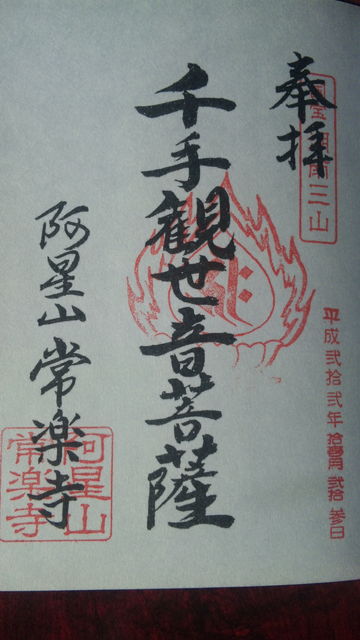 奉拝
国宝 湖南三山
千手観世音菩薩
平成弐拾弐年 拾壹月 弐拾参日
阿星山 常楽寺
阿星山
常楽寺